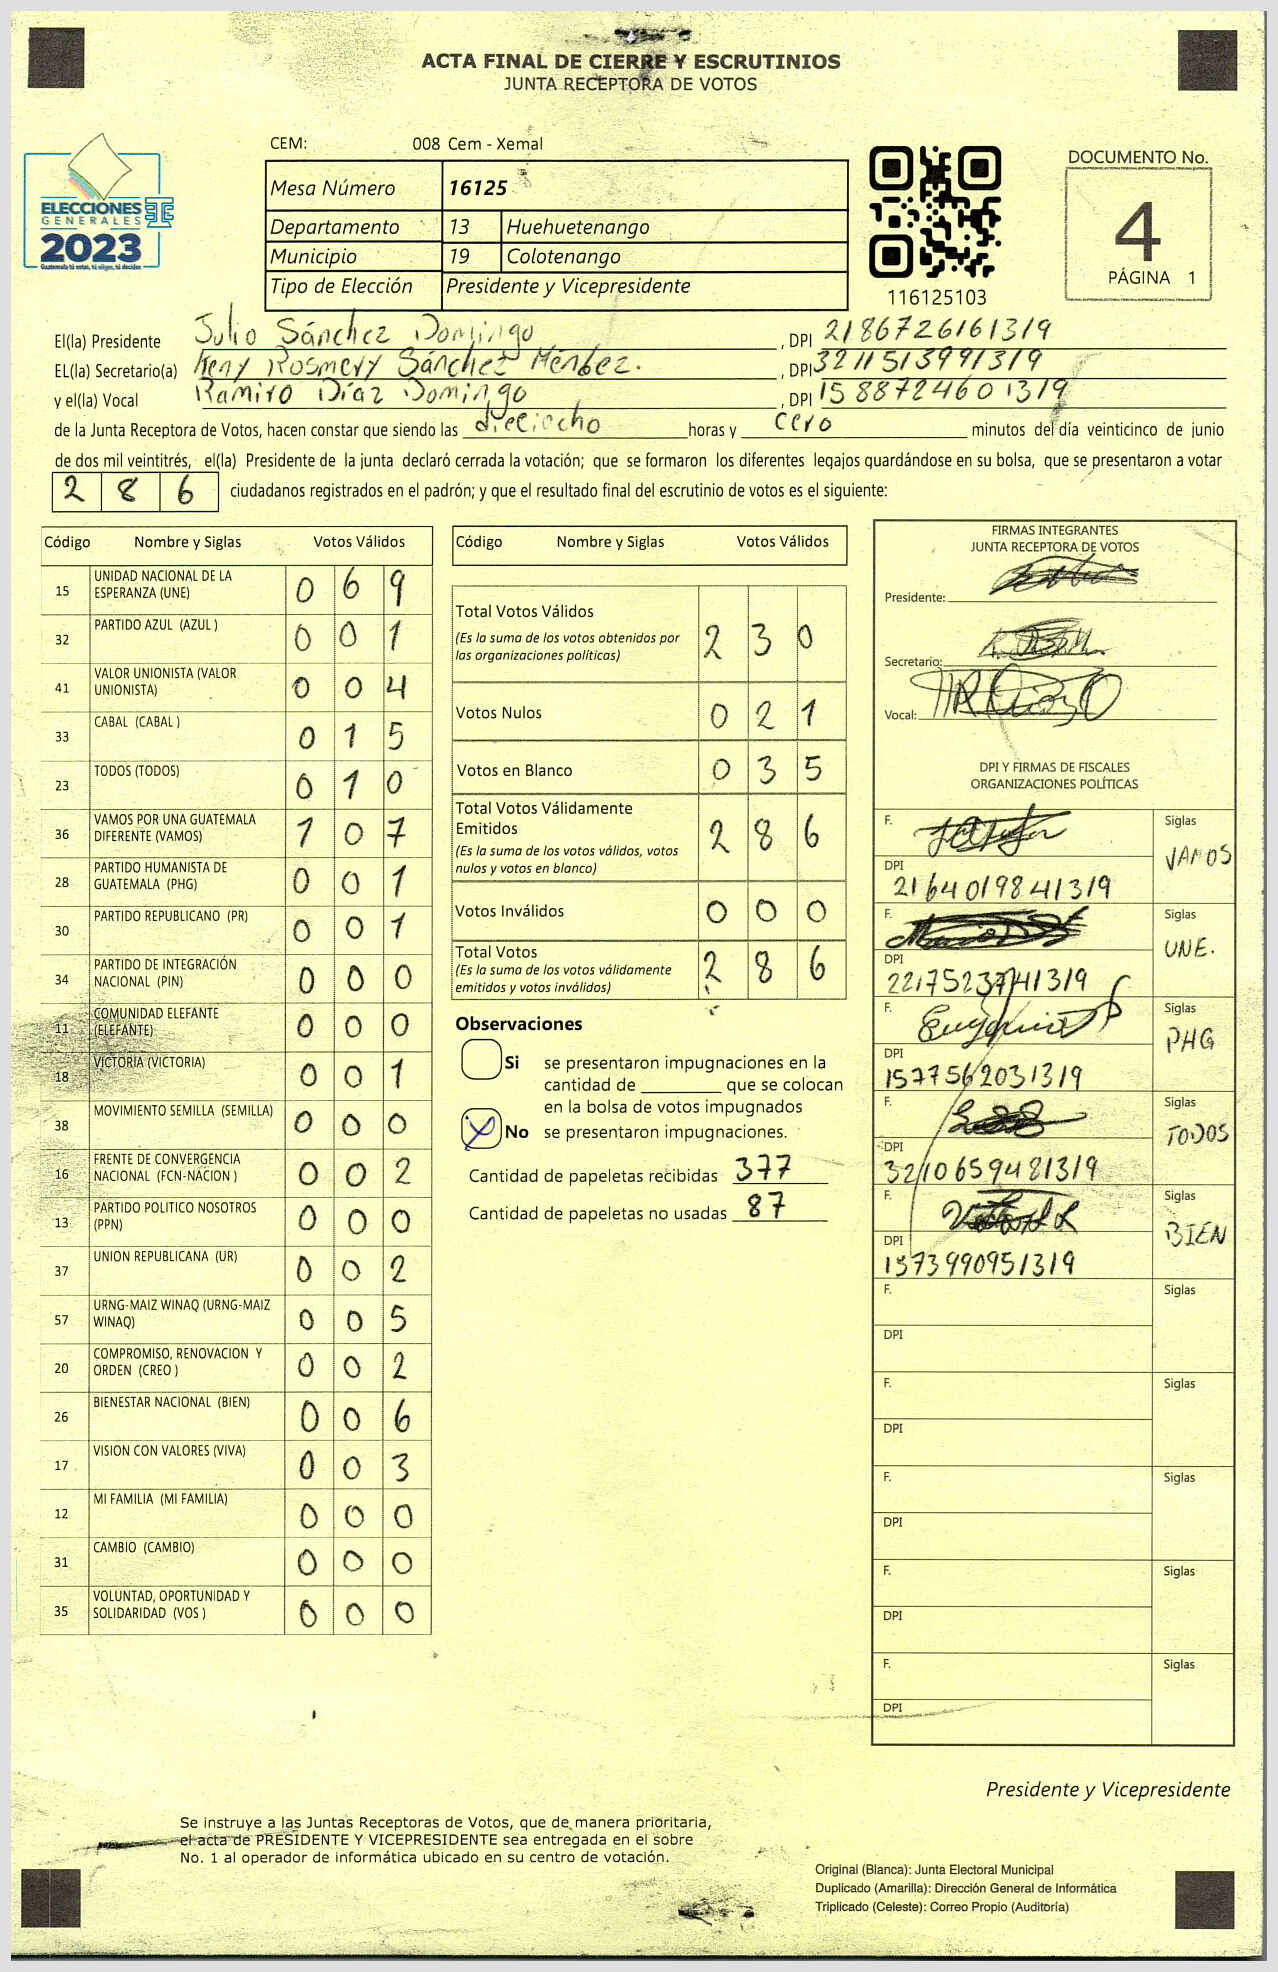 ACTA FINAL DE CIERRE Y ESCRUTINIOS
JUNTA RECEPTORA DE VOTOS
CEM: 008 Cem - Xemal
ELECCIONES
GENERALES
2023
Guatemala tú votas, tú eliges, tú decides
Mesa Número 16125
Departamento 13 Huehuetenango
Municipio 19 Colotenango
Tipo de Elección Presidente y Vicepresidente
116125103
DOCUMENTO No.
4
PÁGINA 1
El(la) Presidente Julio Sánchez Domingo, DPI 2186726161319
EL(la) Secretario(a) Keny Rosmery Sánchez Méndez., DPI 3211513991319
y el(la) Vocal Ramiro Díaz Domingo, DPI 1588724601319
de la Junta Receptora de Votos, hacen constar que siendo las dieciocho horas y cero minutos del día veinticinco de junio
de dos mil veintitrés, el(la) Presidente de la junta declaró cerrada la votación; que se formaron los diferentes legajos guardándose en su bolsa, que se presentaron a votar
2 8 6 ciudadanos registrados en el padrón; y que el resultado final del escrutinio de votos es el siguiente:
Código Nombre y Siglas Votos Válidos
15 UNIDAD NACIONAL DE LA ESPERANZA (UNE) 0 6 9
32 PARTIDO AZUL (AZUL ) 0 0 1
41 VALOR UNIONISTA (VALOR UNIONISTA) 0 0 4
33 CABAL (CABAL ) 0 1 5
23 TODOS (TODOS) 0 1 0
36 VAMOS POR UNA GUATEMALA DIFERENTE (VAMOS) 1 0 7
28 PARTIDO HUMANISTA DE GUATEMALA (PHG) 0 0 1
30 PARTIDO REPUBLICANO (PR) 0 0 1
34 PARTIDO DE INTEGRACIÓN NACIONAL (PIN) 0 0 0
11 COMUNIDAD ELEFANTE (ELEFANTE) 0 0 0
18 VICTORIA (VICTORIA) 0 0 1
38 MOVIMIENTO SEMILLA (SEMILLA) 0 0 0
16 FRENTE DE CONVERGENCIA NACIONAL (FCN-NACION ) 0 0 2
13 PARTIDO POLITICO NOSOTROS (PPN) 0 0 0
37 UNION REPUBLICANA (UR) 0 0 2
57 URNG-MAIZ WINAQ (URNG-MAIZ WINAQ) 0 0 5
20 COMPROMISO, RENOVACION Y ORDEN (CREO ) 0 0 2
26 BIENESTAR NACIONAL (BIEN) 0 0 6
17 VISION CON VALORES (VIVA) 0 0 3
12 MI FAMILIA (MI FAMILIA) 0 0 0
31 CAMBIO (CAMBIO) 0 0 0
35 VOLUNTAD, OPORTUNIDAD Y SOLIDARIDAD (VOS ) 0 0 0
Código Nombre y Siglas Votos Válidos
Total Votos Válidos 2 3 0
(Es la suma de los votos obtenidos por
las organizaciones políticas)
Votos Nulos 0 2 1
Votos en Blanco 0 3 5
Total Votos Válidamente
Emitidos 2 8 6
(Es la suma de los votos válidos, votos
nulos y votos en blanco)
Votos Inválidos 0 0 0
Total Votos 2 8 6
(Es la suma de los votos válidamente
emitidos y votos inválidos)
Observaciones
Si se presentaron impugnaciones en la
cantidad de ________ que se colocan
en la bolsa de votos impugnados
X No se presentaron impugnaciones.
Cantidad de papeletas recibidas 377
Cantidad de papeletas no usadas 87
FIRMAS INTEGRANTES
JUNTA RECEPTORA DE VOTOS
Presidente:
Secretario:
Vocal:
DPI Y FIRMAS DE FISCALES
ORGANIZACIONES POLÍTICAS
F. Siglas VAMOS
DPI 2164019841319
F. Siglas UNE.
DPI 2217523741319
F. Siglas PHG
DPI 1577562031319
F. Siglas TODOS
DPI 3210659481319
F. Siglas BIEN
DPI 1573990951319
F. Siglas
DPI
F. Siglas
DPI
F. Siglas
DPI
F. Siglas
DPI
F. Siglas
DPI
Presidente y Vicepresidente
Se instruye a las Juntas Receptoras de Votos, que de manera prioritaria,
el acta de PRESIDENTE Y VICEPRESIDENTE sea entregada en el sobre
No. 1 al operador de informática ubicado en su centro de votación.
Original (Blanca): Junta Electoral Municipal
Duplicado (Amarilla): Dirección General de Informática
Triplicado (Celeste): Correo Propio (Auditoría)